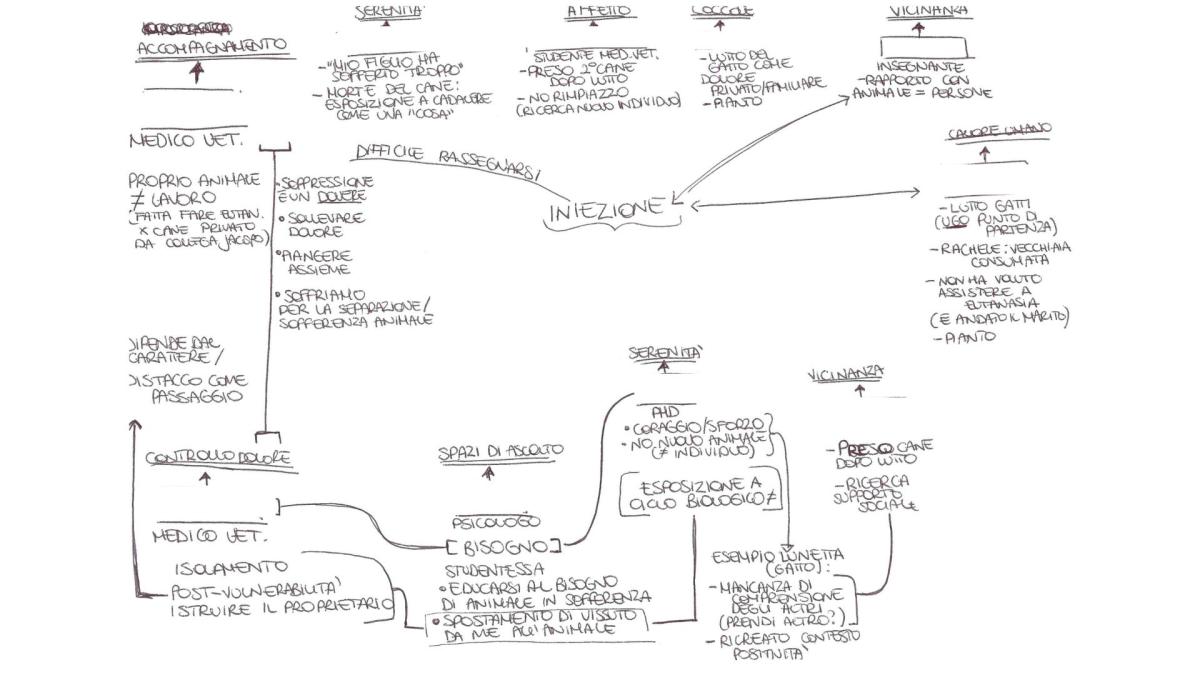 ACCOMPAGNAMENTO
MEDICO VET.
PROPRIO ANIMALE
≠ LAVORO
(FATTA FARE EUTAN.
X CANE PRIVATO
DA COLLEGA, JACOPO)
DIPENDE DAL
CARATTERE /
DISTACCO COME
PASSAGGIO
SERENITA'
- "MIO FIGLIO HA
SOFFERTO TROPPO"
- MORTE DEL CANE:
ESPOSIZIONE A CADAVERE
COME UNA "COSA"
AFFETTO
STUDENTE MED. VET.
- PRESO 2° CANE
DOPO LUTTO
- NO RIMPIAZZO
(RICERCA NUOVO INDIVIDUO)
COCCOLE
- LUTTO DEL
GATTO COME
DOLORE
PRIVATO/FAMILIARE
- PIANTO
VICINANZA
INSEGNANTE
- RAPPORTO CON
ANIMALE = PERSONE
DIFFICILE RASSEGNARSI
INIEZIONE
• SOPPRESSIONE
È UN DOVERE
• SOLLEVARE
DOLORE
• PIANGERE
ASSIEME
• SOFFRIAMO
PER LA SEPARAZIONE /
SOFFERENZA ANIMALE
CALORE UMANO
- LUTTO GATTI
(UGO PUNTO DI
PARTENZA)
- RACHELE: VECCHIAIA
CONSUMATA
- NON HA VOLUTO
ASSISTERE A
EUTANASIA
(È ANDATO IL MARITO)
- PIANTO
CONTROLLO DOLORE
MEDICO VET.
ISOLAMENTO
POST-VULNERABILITA'
ISTRUIRE IL PROPRIETARIO
SPAZI DI ASCOLTO
PSICOLOGO
[BISOGNO]
STUDENTESSA
• EDUCARSI AL BISOGNO
DI ANIMALE IN SOFFERENZA
• SPOSTAMENTO DI VISSUTO
DA ME ALL'ANIMALE
SERENITA'
PHD
• CORAGGIO/SFORZO
• NO NUOVO ANIMALE
(≠ INDIVIDUO)
ESPOSIZIONE A
CICLO BIOLOGICO ≠
VICINANZA
- PRESO CANE
DOPO LUTTO
- RICERCA
SUPPORTO
SOCIALE
ESEMPIO LUNETTA
(GATTO):
- MANCANZA DI
COMPRENSIONE
DEGLI ALTRI
(PRENDI ALTRO?)
- RICREATO CONTESTO
POSITIVITA'